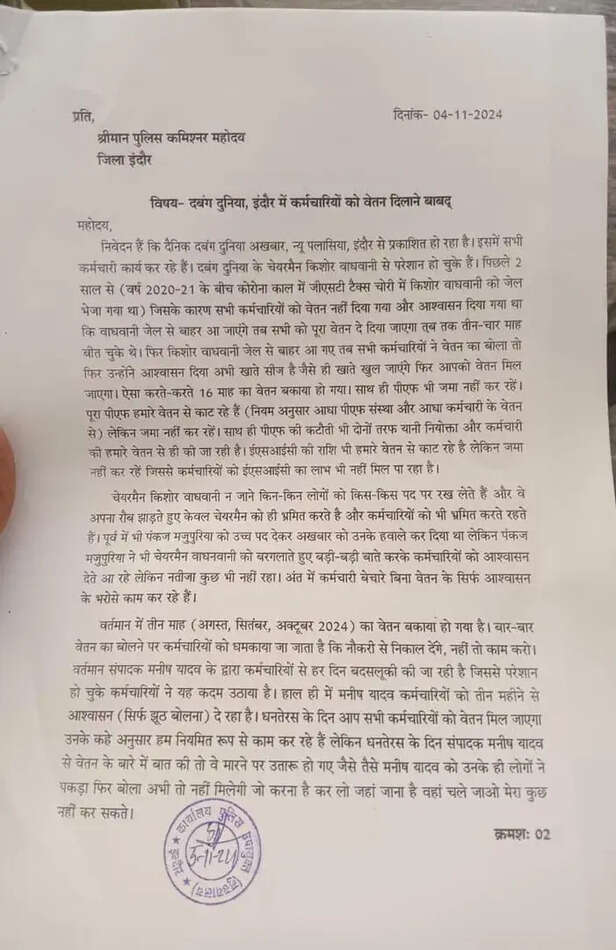 प्रति,
दिनांक- 04-11-2024
श्रीमान पुलिस कमिश्नर महोदय
जिला इंदौर
विषय- दबंग दुनिया, इंदौर में कर्मचारियों को वेतन दिलाने बाबद्
महोदय,
निवेदन हैं कि दैनिक दबंग दुनिया अखबार, न्यू पलासिया, इंदौर से प्रकाशित हो रहा है। इसमें सभी
कर्मचारी कार्य कर रहे हैं। दबंग दुनिया के चेयरमैन किशोर वाधवानी से परेशान हो चुके हैं। पिछले 2
साल से (वर्ष 2020-21 के बीच कोरोना काल में जीएसटी टैक्स चोरी में किशोर वाधवानी को जेल
भेजा गया था) जिसके कारण सभी कर्मचारियों को वेतन नहीं दिया गया और आश्वासन दिया गया था
कि वाधवानी जेल से बाहर आ जाएंगे तब सभी को पूरा वेतन दे दिया जाएगा तब तक तीन-चार माह
बीत चुके थे। फिर किशोर वाधवानी जेल से बाहर आ गए तब सभी कर्मचारियों ने वेतन का बोला तो
फिर उन्होंने आश्वासन दिया अभी खाते सीज है जैसे ही खाते खुल जाएंगे फिर आपको वेतन मिल
जाएगा। ऐसा करते-करते 16 माह का वेतन बकाया हो गया। साथ ही पीएफ भी जमा नहीं कर रहें।
पूरा पीएफ हमारे वेतन से काट रहे हैं (नियम अनुसार आधा पीएफ संस्था और आधा कर्मचारी के वेतन
से) लेकिन जमा नहीं कर रहें। साथ ही पीएफ की कटौती भी दोनों तरफ यानी नियोक्ता और कर्मचारी
की हमारे वेतन से ही की जा रही है। ईएसआईसी की राशि भी हमारे वेतन से काट रहे है लेकिन जमा
नहीं कर रहें जिससे कर्मचारियों को ईएसआईसी का लाभ भी नहीं मिल पा रहा है।
चेयरमैन किशोर वाधवानी न जाने किन-किन लोगों को किस-किस पद पर रख लेते हैं और वे
अपना रौब झाड़ते हुए केवल चेयरमैन को ही भ्रमित करते है और कर्मचारियों को भी भ्रमित करते रहते
हैं। पूर्व में भी पंकज मजुपुरिया को उच्च पद देकर अखबार को उनके हवाले कर दिया था लेकिन पंकज
मजुपुरिया ने भी चेयरमैन वाघनवानी को बरगलाते हुए बड़ी-बड़ी बाते करके कर्मचारियों को आश्वासन
देते आ रहे लेकिन नतीजा कुछ भी नहीं रहा। अंत में कर्मचारी बेचारे बिना वेतन के सिर्फ आश्वासन
के भरोसे काम कर रहे हैं।
वर्तमान में तीन माह (अगस्त, सितंबर, अक्टूबर 2024) का वेतन बकाया हो गया है। बार-बार
वेतन का बोलने पर कर्मचारियों को धमकाया जा जाता है कि नौकरी से निकाल देंगे, नहीं तो काम करो।
वर्तमान संपादक मनीष यादव के द्वारा कर्मचारियों से हर दिन बदसलूकी की जा रही है जिससे परेशान
हो चुके कर्मचारियों ने यह कदम उठाया है। हाल ही में मनीष यादव कर्मचारियों को तीन महीने से
आश्वासन (सिर्फ झूठ बोलना) दे रहा है। धनतेरस के दिन आप सभी कर्मचारियों को वेतन मिल जाएगा
उनके कहे अनुसार हम नियमित रूप से काम कर रहे हैं लेकिन धनतेरस के दिन संपादक मनीष यादव
से वेतन के बारे में बात की तो वे मारने पर उतारू हो गए जैसे तैसे मनीष यादव को उनके ही लोगों ने
पकड़ा फिर बोला अभी तो नहीं मिलेगी जो करना है कर लो जहां जाना है वहां चले जाओ मेरा कुछ
नहीं कर सकते।
क्रमशः 02
कार्यालय पुलिस उपायुक्त (मुख्यालय)